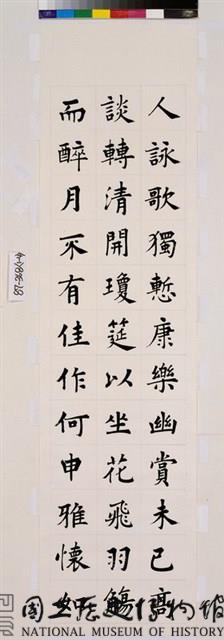 人詠歌獨慙康樂幽賞未已高
談轉清開瓊筵以坐花飛羽觴
而醉月不有佳作何申雅懷
國立歷史博物館
NATIONAL MUSEUM OF HISTORY